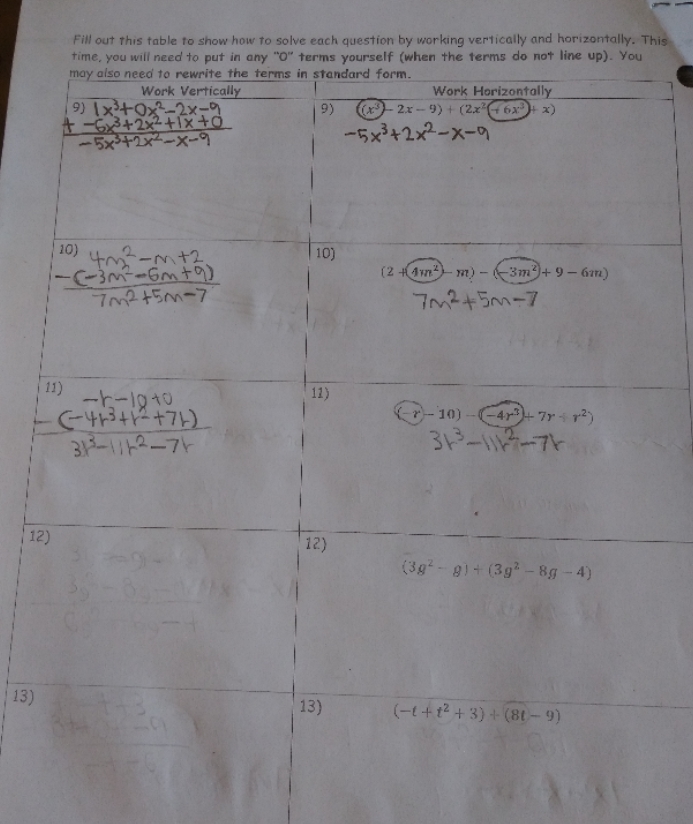 Fill out this table to show how to solve each question by working vertically and horizontally. This
time, you will need to put in any "0" terms yourself (when the terms do not line up). You
may also need to rewrite the terms in standard form.
Work Vertically
Work Horizontally
9) 1x³+0x²-2x-9
+ -6x³+2x²+1x+0
-5x³+2x²-x-9
9) (x³ - 2x - 9) + (2x² + 6x³ + x)
-5x³+2x²-x-9
10) 4m²-m+2
-(-3m²-6m+9)
7m²+5m-7
10)
(2 + 4m² - m) - (-3m² + 9 - 6m)
7m²+5m-7
11)
-r-10+0
-(-4r³+r²+7r)
3r³-11r²-7r
11)
(-r - 10) - (-4r³ + 7r + r²)
3r³-11r²-7r
12)
12)
(3g² - g) + (3g² - 8g - 4)
13)
13)
(-t + t² + 3) + (8t - 9)